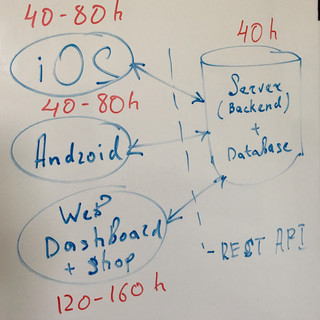 40-80h
iOS
40-80h
Android
Web
Dashboard
+ Shop
120-160h
40h
Server
(Backend)
+
Database
- REST API